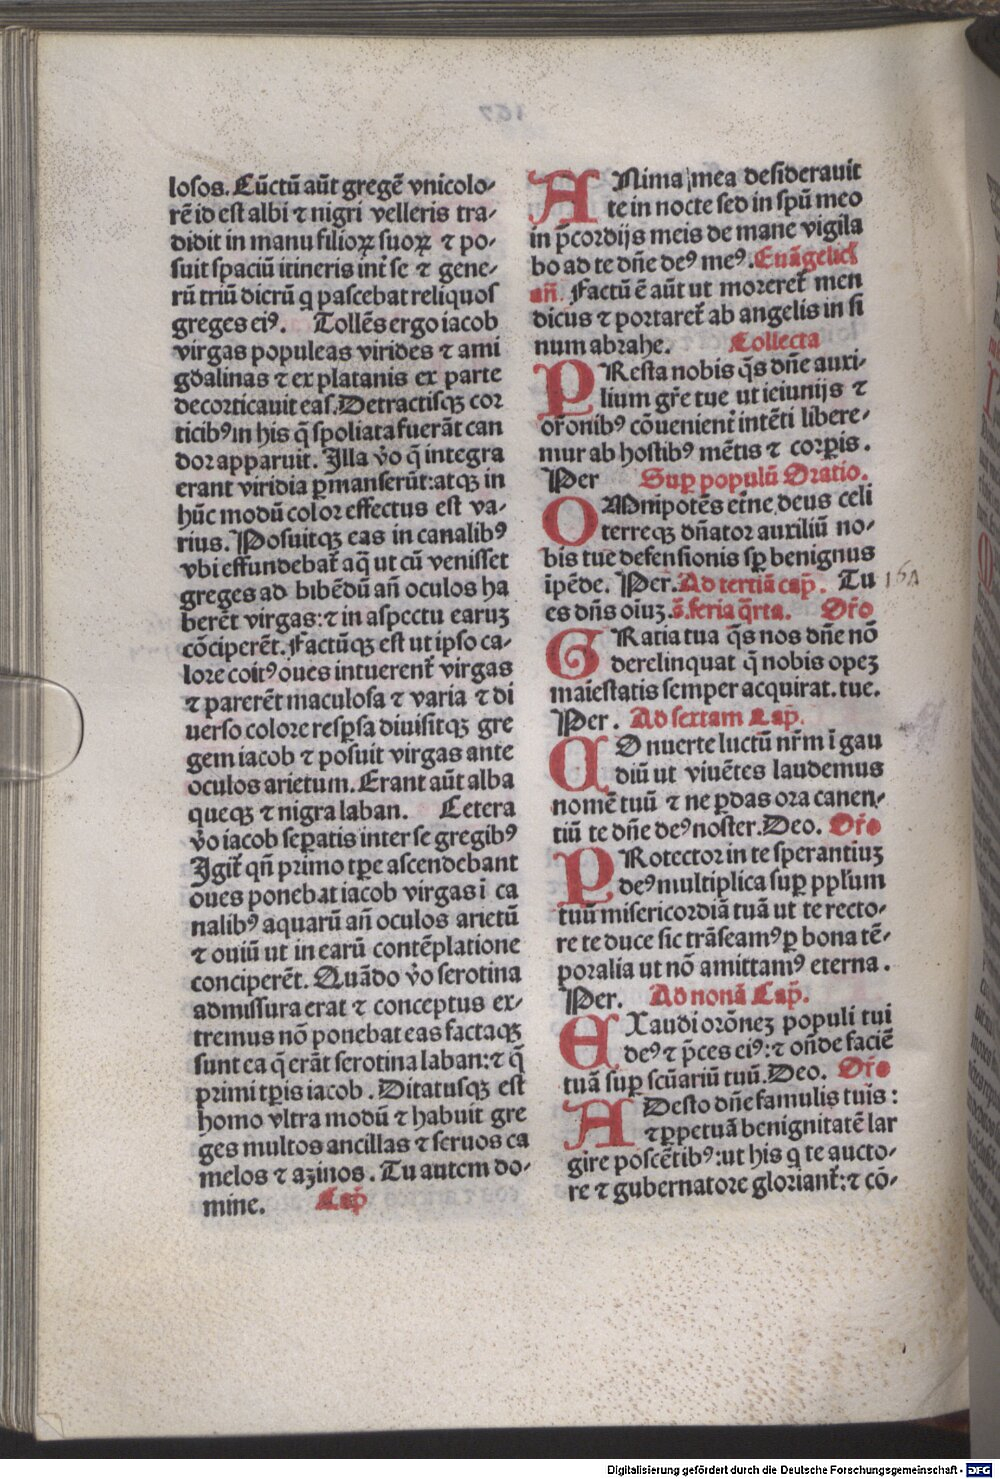 losos. Cūctū aūt gregē vnicolo-
rē id est albi ⁊ nigri velleris tra-
didit in manu filioꝝ suoꝝ ⁊ po-
suit spaciū itineris int̄ se ⁊ gene-
rū triū dierū q pascebat reliquos
greges eiꝰ. Tollēs ergo iacob
virgas populeas virides ⁊ ami
gdalinas ⁊ ex platanis ex parte
decorticauit eas. Detractisqꝫ cor
ticibꝰ in his q̄ spoliata fuerāt can
dor apparuit. Illa v̊o q̄ integra
erant viridia ꝑmanserūt: atqꝫ in
hūc modū color effectus est va-
rius. Posuitqꝫ eas in canalibꝰ
vbi effundebat̄ aq̄ ut cū venisset
greges ad bibēdū an̄ oculos ha
berēt virgas: ⁊ in aspectu earuꝫ
cōciperēt. Factūqꝫ est ut ipso ca-
lore coitꝰ oues intuerent̄ virgas
⁊ parerēt maculosa ⁊ varia ⁊ di
uerso colore resꝑsa diuisitqꝫ gre
gem iacob ⁊ posuit virgas ante
oculos arietum. Erant aūt alba
queqꝫ ⁊ nigra laban. Cetera
v̊o iacob seꝑatis inter se gregibꝰ
Igit̄ qn̄ primo tꝑe ascendebant
oues ponebat iacob virgas ī ca
nalibꝰ aquarū an̄ oculos arietū
⁊ ouiū ut in earū contēplatione
conciperēt. Quādo v̊o serotina
admissura erat ⁊ conceptus ex-
tremus nō ponebat eas factaqꝫ
sunt ea q̄ erāt serotina laban: ⁊ q̄
primi tꝑis iacob. Ditatusqꝫ est
homo vltra modū ⁊ habuit gre
ges multos ancillas ⁊ seruos ca
melos ⁊ azinos. Tu autem do-
mine. Cap̄
ANima mea desiderauit
te in nocte sed in spū meo
in p̄cordijs meis de mane vigila
bo ad te dn̄e deꝰ meꝰ. Euāgelicā
an̄. Factū ē aūt ut moreret̄ men
dicus ⁊ portaret̄ ab angelis in si
num abrahe. Collecta
PResta nobis q̄s dn̄e auxi-
lium gr̄e tue ut ieiunijs ⁊
or̄onibꝰ cōuenient̄ intēti libere-
mur ab hostibꝰ mētis ⁊ corꝑis.
Per Suꝑ populū Oratio.
OMnipotēs et̄ne deus celi
terreqꝫ dn̄ator auxiliū no-
bis tue defensionis sꝑ benignus
ipēde. Per. Ad tertiā cap̄. Tu
es dn̄s oīuꝫ. s̄. feria q̄rta. Or̄o
GRatia tua q̄s nos dn̄e nō
derelinquat q̄ nobis opeꝫ
maiestatis semper acquirat. tue.
Per. Ad sextam Cap̄.
COnuerte luctū nr̄m ī gau
diū ut viuētes laudemus
nomē tuū ⁊ ne ꝑdas ora canen-
tiū te dn̄e deꝰ noster. Deo. Or̄o
PRotector in te sperantiuꝫ
deꝰ multiplica suꝑ ppl'um
tuū misericordiā tuā ut te recto-
re te duce sic trāseamꝰ ꝑ bona tē-
poralia ut nō amittamꝰ eterna.
Per. Ad nonā Cap̄.
EXaudi orōneꝫ populi tui
deꝰ ⁊ p̄ces eiꝰ: ⁊ on̄de faciē
tuā suꝑ scūariū tuū. Deo. Or̄o
ADesto dn̄e famulis tuis:
⁊ ꝑpetuā benignitatē lar
gire poscētibꝰ: ut his q te aucto-
re ⁊ gubernatore gloriant̄: ⁊ cō-
Digitalisierung gefördert durch die Deutsche Forschungsgemeinschaft - DFG